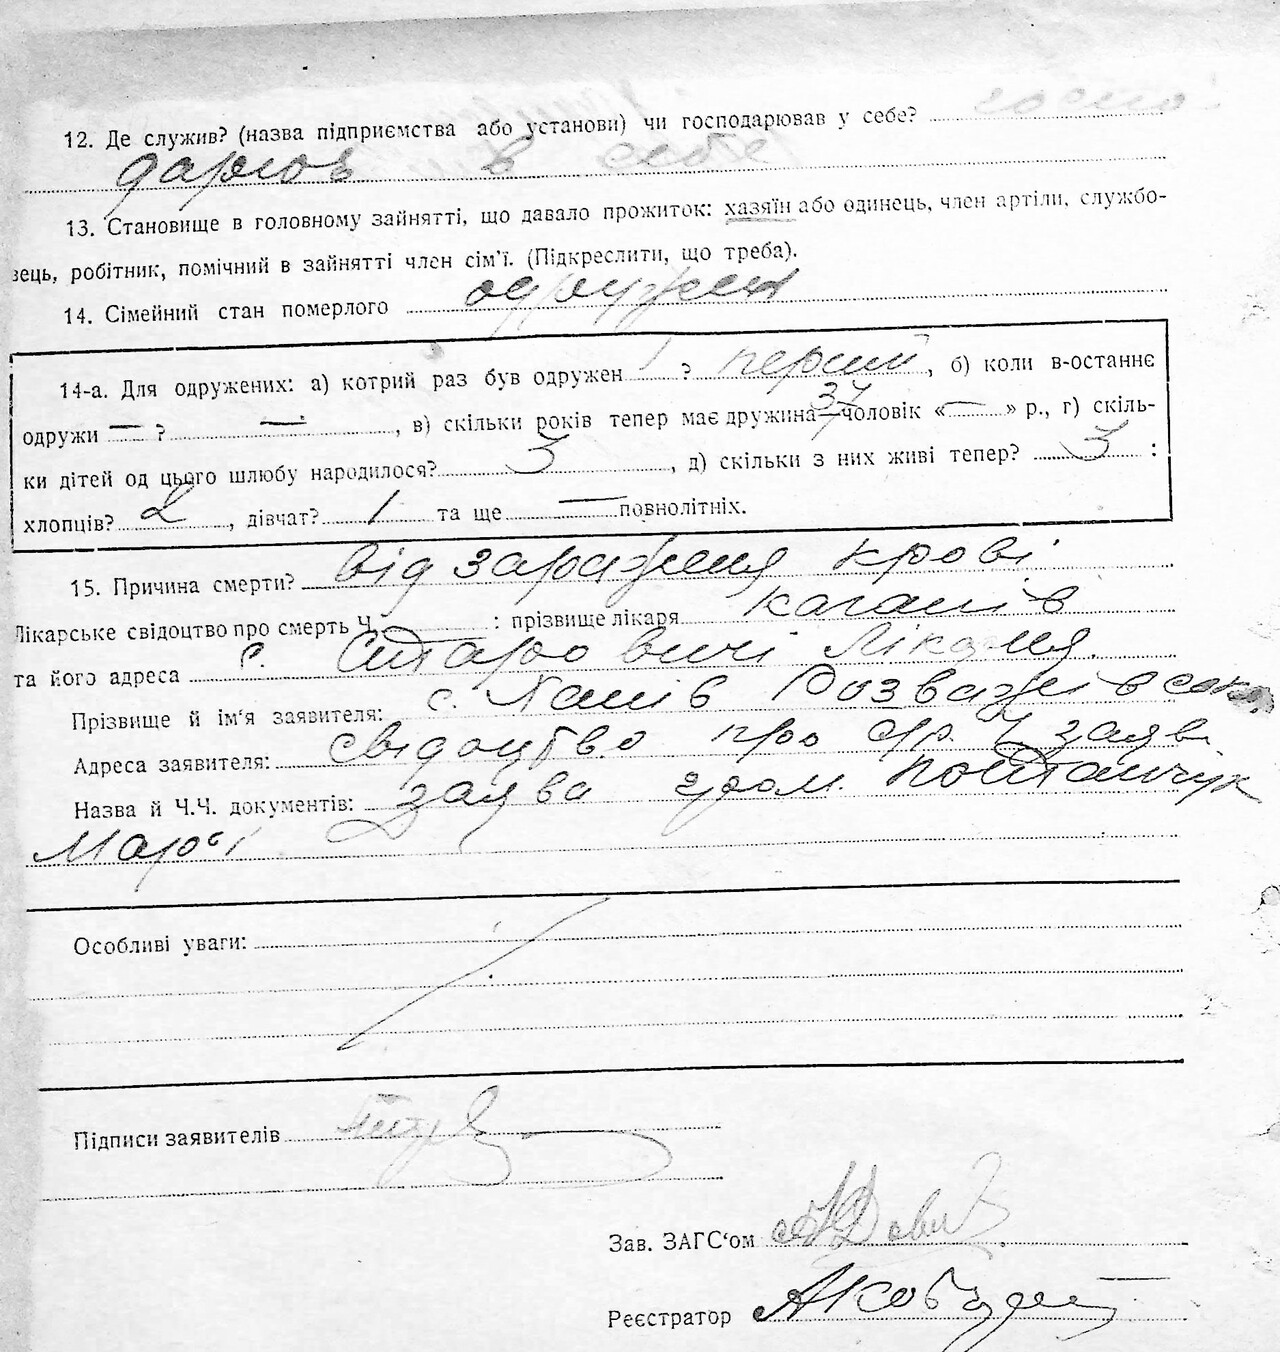 12. Де служив? (назва підприємства або установи) чи господарював у себе? госпо
дарюв в себе
13. Становище в головному зайнятті, що давало прожиток: хазяїн або одинець, член артіли, службо-
вець, робітник, помічний в зайнятті член сім'ї. (Підкреслити, що треба).
14. Сімейний стан померлого одружен
14-а. Для одружених: а) котрий раз був одружен 1 ? перший, б) коли в-останнє
одружи — ? —, в) скільки років тепер має дружина 37 чоловік «—» р., г) скіль-
ки дітей од цього шлюбу народилося? 3, д) скільки з них живі тепер? 3 :
хлопців? 2, дівчат? 1 та ще — повнолітніх.
15. Причина смерти? Від зараження крові
Лікарське свідоцтво про смерть Ч. : прізвище лікаря Каганів
та його адреса с. Старовичі Лікарня.
Прізвище й ім'я заявителя: с. Ханів Розважівсок.
Адреса заявителя: свідоцтво про ср. Ч заяві
Назва й Ч.Ч. документів: заява гром. Поштанчук
Марві
Особливі уваги:
Підписи заявителів
Зав. ЗАГС'ом
Реєстратор